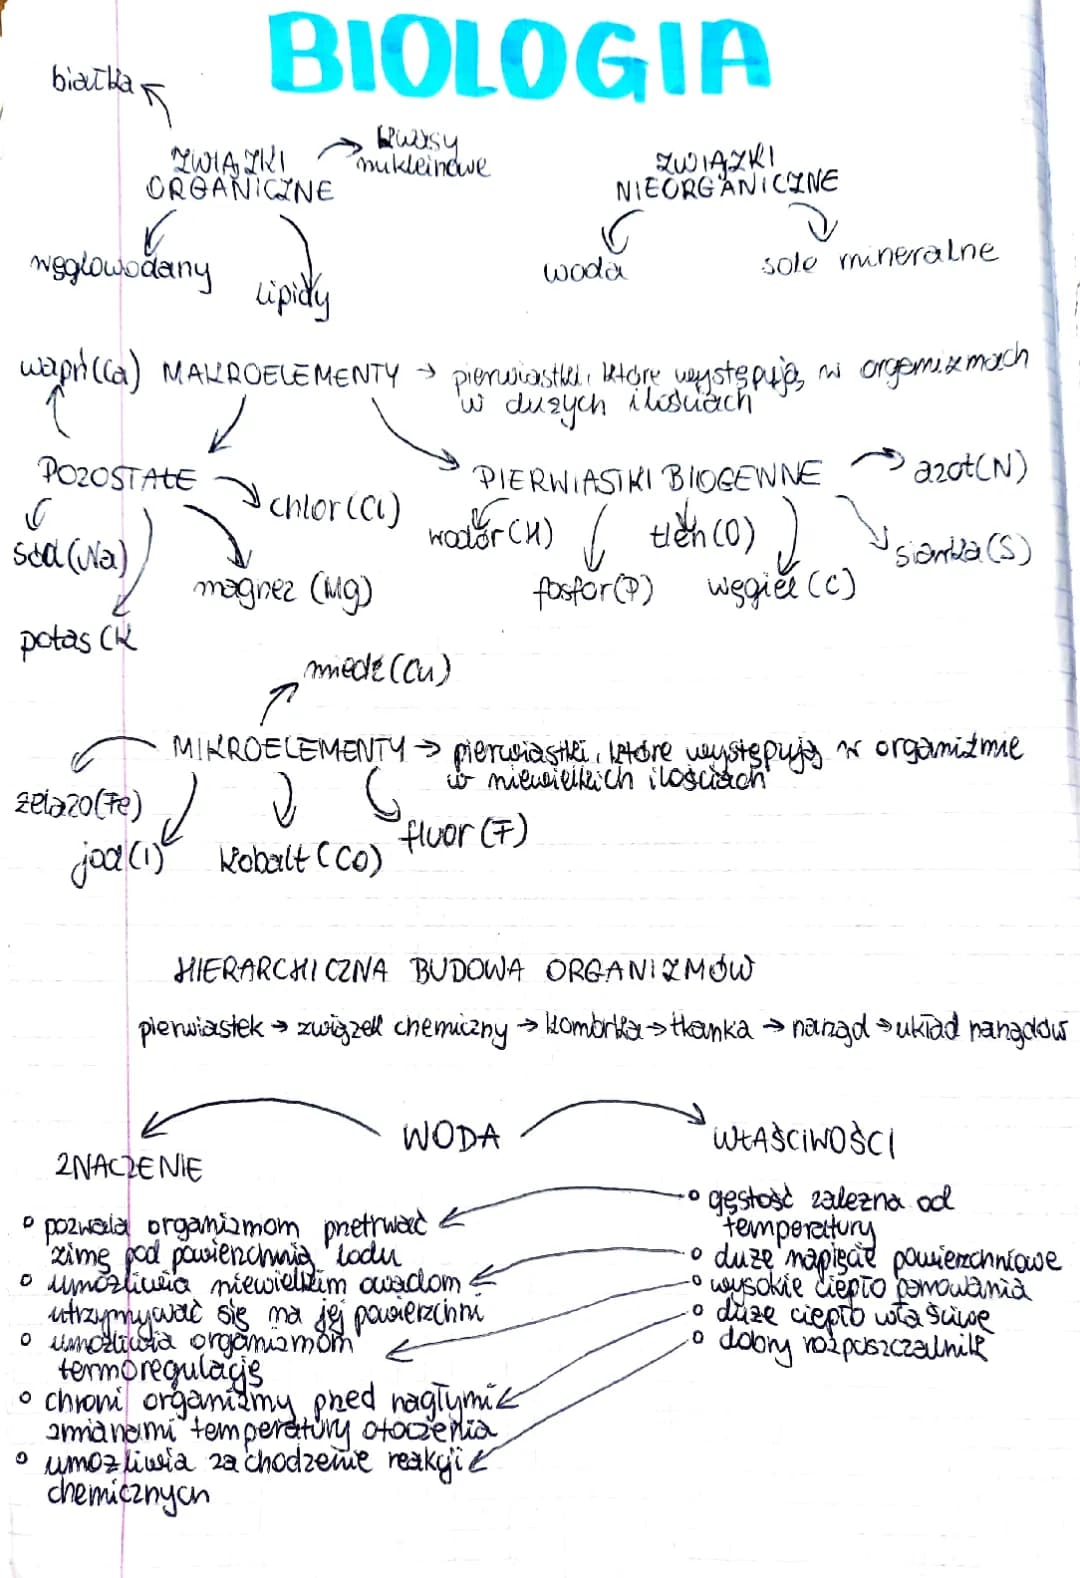 BIOLOGIA
białka
ZWIĄZKI
ORGANICZNE
kwasy
nukleinowe
węglowodany
lipidy
ZWIĄZKI
NIEORGANICZNE
woda
sole mineralne
wapń (Ca) MAKROELEMENTY → pierwiastki, które występują w organizmach
w dużych ilościach
POZOSTAŁE
chlor (Cl)
sód (Na)
magnez (Mg)
potas (K
PIERWIASTKI BIOGENNE
azot (N)
wodór (H)
tlen (O)
siarka (S)
fosfor (P)
węgiel (C)
miedź (Cu)
MIKROELEMENTY → pierwiastki, które występują w organizmie
w niewielkich ilościach
żelazo (Fe)
jod (I)
kobalt (CO)
fluor (F)
HIERARCHICZNA BUDOWA ORGANIZMÓW
pierwiastek → związek chemiczny → komórka → tkanka → narząd → układ narządów
WODA
ZNACZENIE
pozwala organizmom przetrwać
zimę pod powierzchnią lodu
umożliwia niewielkim owadom
utrzymywać się na jej powierzchni
umożliwia organizmom
termoregulację
chroni organizmy przed nagłymi
zmianami temperatury otoczenia
umożliwia zachodzenie reakcji
chemicznych
WŁAŚCIWOŚCI
gęstość zależna od
temperatury
duże napięcie powierzchniowe
wysokie ciepło parowania
duże ciepło właściwe
dobry rozpuszczalnik